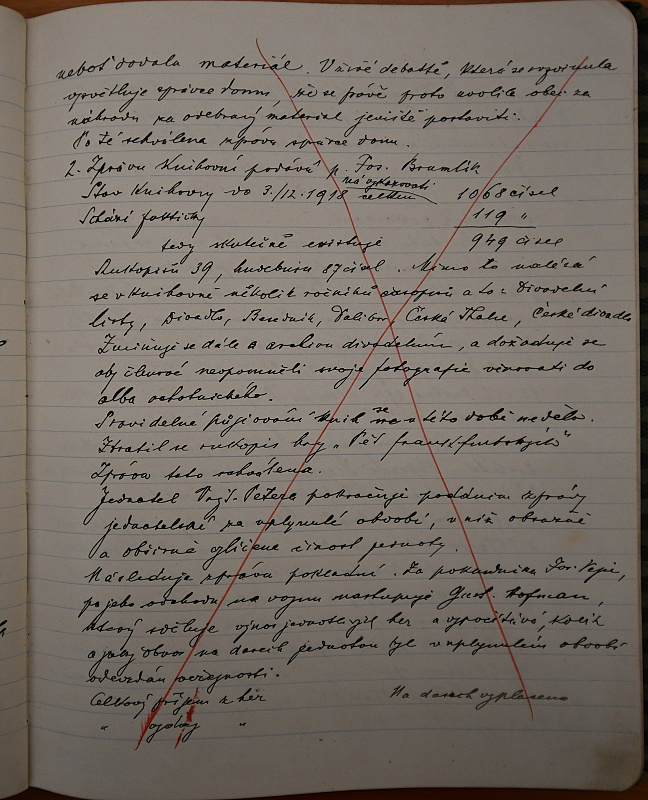 neboť dovala materiál. V živé debatě, která se rozvinula
vysvětluje správce domu, že se právě proto uvolila obec za
náhradu za odebraný materiál jeviště postaviti.
Poté schválena zpráva správce domu.
2. Zprávu knihovní podává p. Jos. Bramlík
na vykazovati
Stav knihovny do 3./12. 1918 celkem 1068 čísel
Schází fakticky 119 "
tedy skutečně existuje 949 čísel
Rukopisů 39, hudebnin 87 čísel. Mimo to nalézá
se v knihovně několik ročníků časopisů a to: Divadelní
listy, Divadlo, Besedník, Dalibor, Česká Thalie, České divadlo
Zmiňuje se dále o archivu divadelním, a dožaduje se
aby členové neopomněli svoje fotografie věnovati do
alba ochotnického.
Pravidelné půjčování knih se v této době nedělo.
Ztratil se rukopis hry „Pět frankfurtských"
Zpráva tato schválena.
Jednatel Vojt. Petera pokračuje podáním zprávy
jednatelské za uplynulé období, v níž obrazně
a obšírně vylíčena činnost jednoty.
Následuje zpráva pokladní. Za pokladníka Jos. Pepi,
po jeho odchodu na vojnu nastupuje Gust. Hofman,
který sděluje výnos jednotlivých her a vypočítává, kolik
a jaký obnos na darech jednotou byl v uplynulém období
odevzdán veřejnosti.
Celkový příjem z her Na darech vyplaceno
" výdaj "